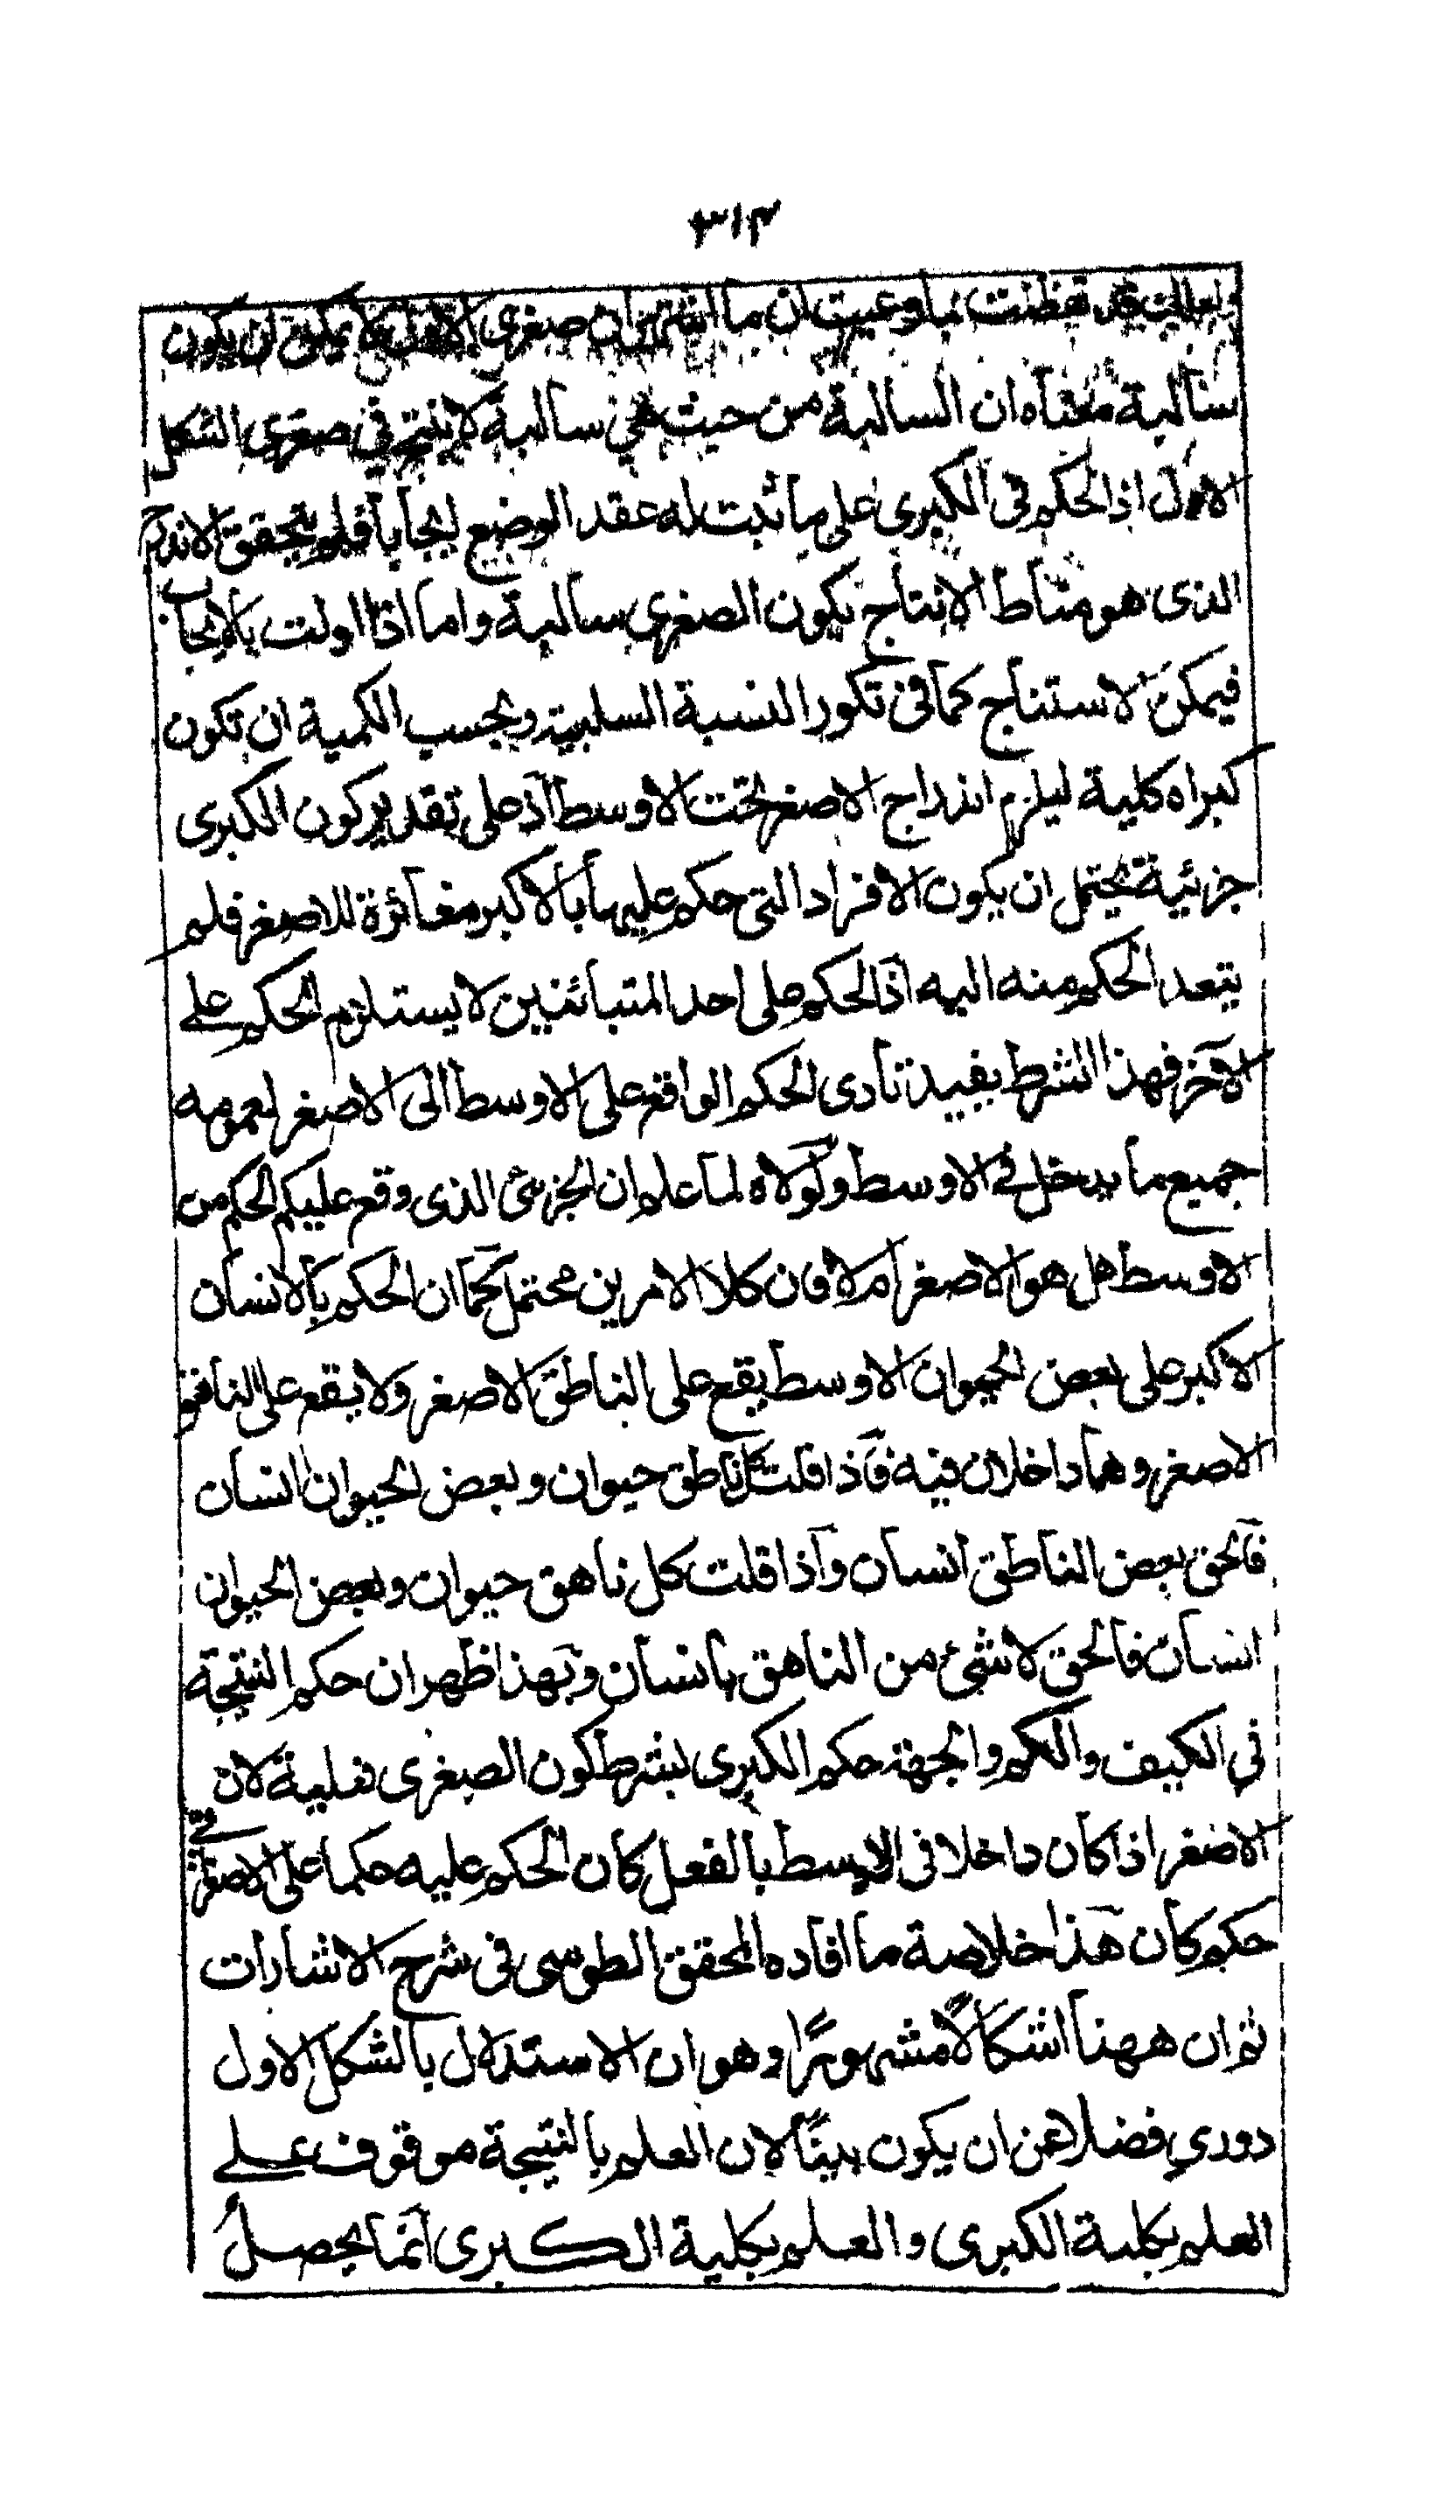 ٣١٣
ولعلك قد تفطنت مما وعيت ان ما اشتهر ان صغرى الاول لا يمكن ان يكون
سالبة معناه ان السالبة من حيث هي سالبة لا ينتج في صغرى الشكل
الاول اذ الحكم في الكبرى على ما ثبت له عقد الوضع ايجابا فلم يتحقق الاندراج
الذى هو مناط الانتاج بكون الصغرى سالبة واما اذا اولت بالايجاب
فيمكن الاستنتاج كما في تكرر النسبة السلبية وبحسب الكمية ان تكون
كبراه كلية ليلزم اندراج الاصغر تحت الاوسط اذ على تقدير كون الكبرى
جزئية يحتمل ان يكون الافراد التى حكم عليها بالاكبر مغائرة للاصغر فلم
يتعد الحكم منه اليه اذ الحكم على احد المتبائنين لا يستلزم الحكم على
الآخر فهذا الشرط يفيد تأدى الحكم الواقع على الاوسط الى الاصغر لعمومه
جميع ما يدخل في الاوسط ولولاه لما علم ان الجزئى الذى وقع عليه الحكم من
الاوسط هل هو الاصغر ام لا فان كلا الامرين محتمل كما ان الحكم بالانسان
الاكبر على بعض الحيوان الاوسط يقع على الناطق الاصغر ولا يقع على الناهق
الاصغر وهما داخلان فيه فاذا قلت كل ناطق حيوان وبعض الحيوان انسان
فالحق بعض الناطق انسان واذا قلت كل ناهق حيوان وبعض الحيوان
انسان فالحق لا شئ من الناهق بانسان وبهذا ظهر ان حكم النتيجة
في الكيف والكم والجهة حكم الكبرى بشرط كون الصغرى فعلية لان
الاصغر اذا كان داخلا في الاوسط بالفعل كان الحكم عليه حكما على الاصغر اي
حكم كان هذا خلاصة ما افاده المحقق الطوسى في شرح الاشارات
ثم ان ههنا اشكالًا مشهورًا وهو ان الاستدلال بالشكل الاول
دوري فضلا عن ان يكون بينًا لان العلم بالنتيجة موقوف على
العلم بكلية الكبرى والعلم بكلية الكبرى انما يحصل